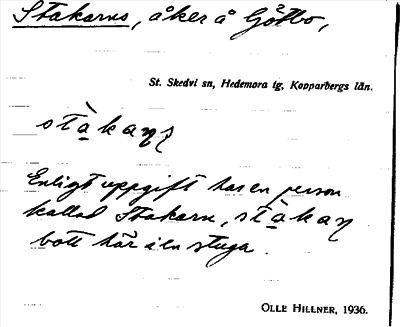 Stakarns, åker å Göttbo,
St. Skedvi sn, Hedemora tg, Kopparbergs län.
stàkaɳʂ
Enligt uppgift har en person
kallad Stakarn, stàkaɳ
bott här i en stuga.
OLLE HILLNER, 1936.